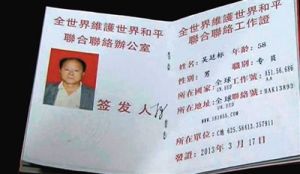 全世界維護世界和平
聯合聯絡辦公室
签发人
全世界維護世界和平
聯合聯絡工作證
姓名: 吴达标 年龄: 58
性别: 男 職别: 专員
所在國家: 全球工作號:
UN.UED
所在地址: 全球聯絡號:
UN.UED
所在單位:
發證: 2013年 3月 17日